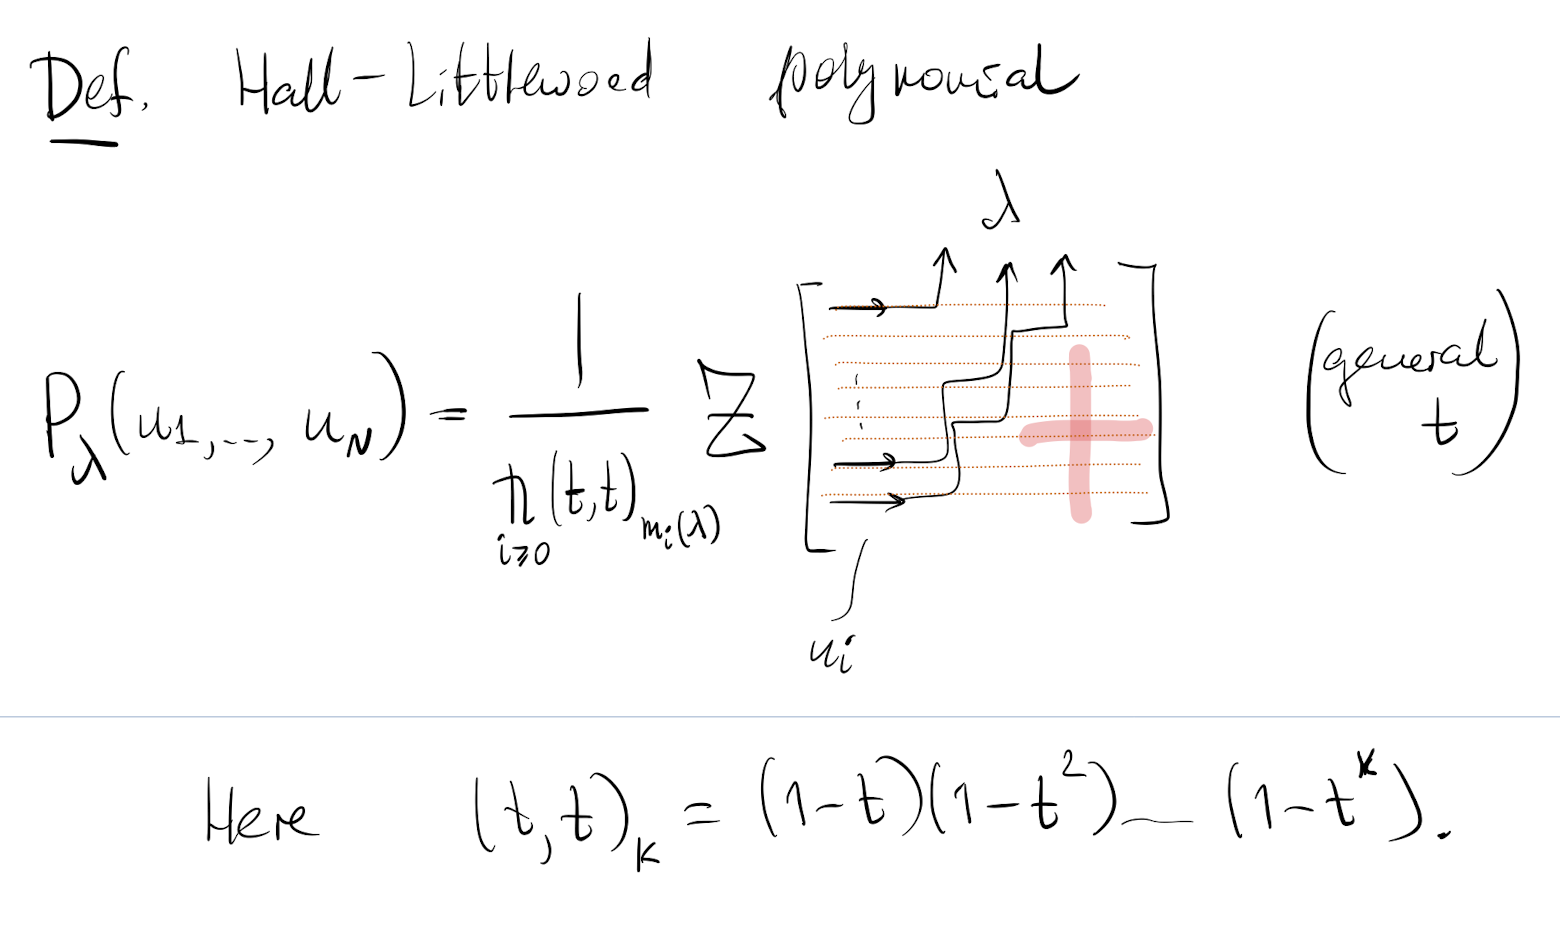 Def. Hall-Littlewood polynomial
λ
P_λ(u_1, ..., u_N) = 1 / ∏_{i≥0} (t,t)_{m_i(λ)} Z [ ] (general t)
u_i
Here (t,t)_k = (1-t)(1-t^2) — (1-t^k).